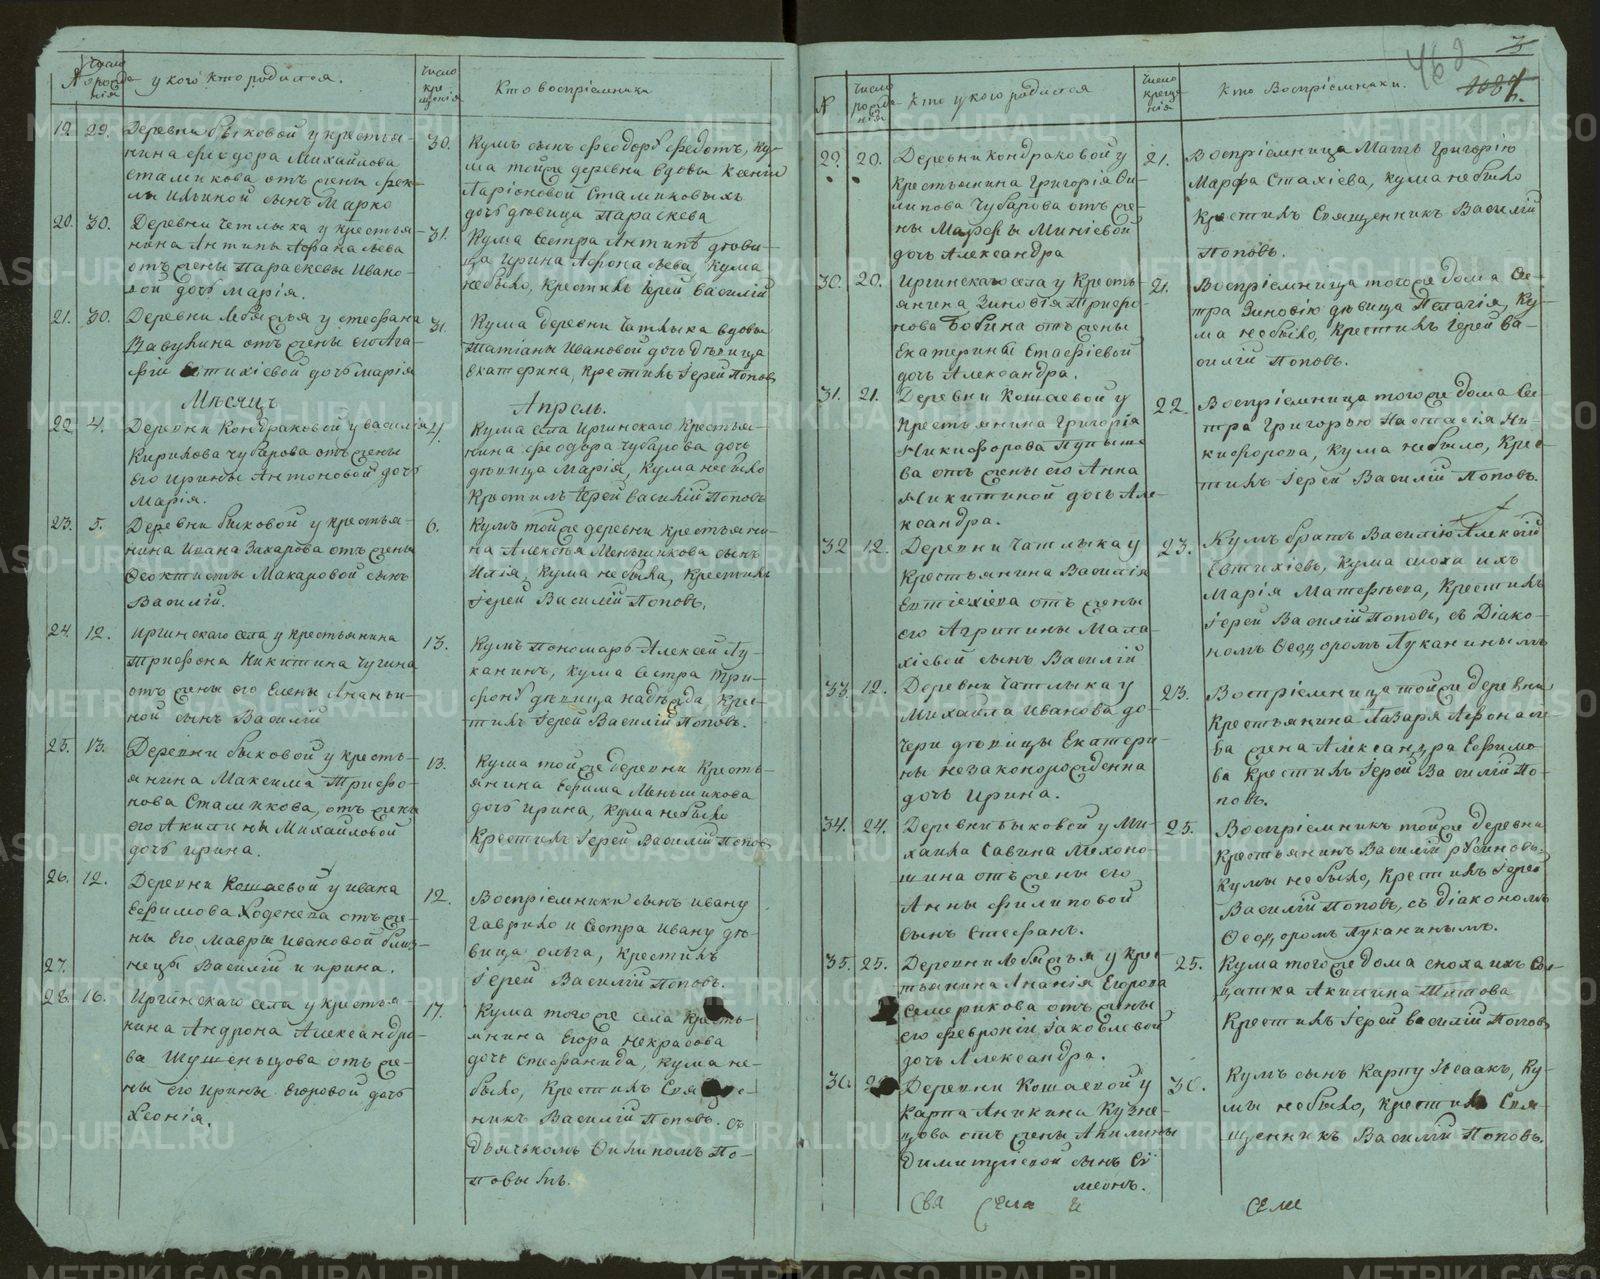 №
Число рожденія
у кого кто родился.
Число крещенія
Кто воспріемники
19. 29. Деревни Быковой у крестья-
нина Феодора Михайлова
Сталикова отъ жены Фек-
лы Ильиной сынъ Марко
30. Кумъ сынъ Феодору Федотъ, ку-
ма тойже деревни вдовы Ксеніи
Ларіоновой Сталиковыхъ
дочь девица Параскева
20. 30. Деревни Чатлыка у крестья-
нина Антипы Афанасьева
отъ жены Параскевы Ивано-
вой дочь Марія.
31. Кума сестра Антипѣ деви-
ца Ирина Афонасьева, кума
небыло, крестилъ Іерей Василій
21. 30. Деревни Лебяжья у Стефана
отъ жены его Ага-
фіи Евтихіевой дочь Марія
31. Кума деревни Чатлыка вдовы
Татіаны Ивановой дочь девица
Екатерина, крестилъ Іерей Поповъ
Мѣсяцъ
Апрель.
22 4. Деревни Кондраковой у Василія
Кирилова Чубарова отъ жены
его Ирины Антоновой дочь
Марія.
4. Кума села Иргинскаго крестья-
нина Феодора Чубарова дочь
девица Марія, кума небыло
Крестилъ Іерей Василій Поповъ
23. 5. Деревни Быковой у крестья-
нина Ивана Захарова отъ жены
Феоктисты Макаровой сынъ
Василій.
6. Кумъ тойже деревни крестьяни-
на Алексѣя Меньшикова сынъ
Илія, кума небыла, крестилъ
Іерей Василій Поповъ.
24. 12. Иргинскаго села у крестьянина
Трифона Никитина Чугина
отъ жены его Елены Ананьи-
ной сынъ Василій
13. Кумъ Пономарь Алексей Лу-
канинъ, кума сестра Три-
фону девица Надежда, крес-
тилъ Іерей Василій Поповъ.
25. 13. Деревни Быковой у кресть-
янина Максима Трифо-
нова Сталикова, отъ жены
его Акилины Михайловой
дочь Ирина.
13. Кума тойже деревни кресть-
янина Ефима Меньшикова
дочь Ирина, кума небыло
Крестилъ Іерей Василій Поповъ
26. 12. Деревни Кошаевой у Ивана
Ефимова отъ же-
ны его Мавры Ивановой близ-
27. нецы Василій и Ирина.
12. Воспріемники сынъ Ивану
Гаврило и сестра Ивану де-
вица Ольга, крестилъ
Іерей Василій Поповъ.
28. 16. Иргинскаго села у крестья-
нина Андрона Александро-
ва отъ же-
ны его Ирины Егоровой дочь
Хеонія.
17. Кума тогоже села кресть-
янина Егора Некрасова
дочь Стефанида, кума не-
было, крестилъ Свяще-
никъ Василій Поповъ. съ
Дьячькомъ Филипомъ По-
повымъ.
462
3
1087.
№
Число рожденія
Кто у кого родился
Число крещенія
Кто Воспріемники.
29. 20. Деревни Кондраковой у
Крестьянина Григорія Фи-
липова Чубарова отъ же-
ны Марфы Миніевой
дочь Александра
21. Воспріемница Мать Григорію
Марфа Стахіева, кума небыло
Крестилъ Священникъ Василій
Поповъ.
30. 20. Иргинскаго села у кресть-
янина Зиновія Трифо-
нова Бобина отъ жены
Екатерины Стафіевой
дочь Александра.
21. Воспріемница тогоже дома се-
стра Зиновію девица Пелагія, ку-
ма небыло, крестилъ Іерей Ва-
силій Поповъ.
31. 21. Деревни Кошаевой у
Крестьянина Григорія
Никифорова Пупыше-
ва отъ жены его Анна
Никитиной дочь Але-
ксандра.
22. Воспріемница тогоже дома сес-
тра Григорью Настасія Ни-
кифорова, кума небыло, крес-
тилъ Іерей Василій Поповъ.
32 12. Деревни Чатлыка у
Крестьянина Василія
Евтіехіева отъ жены
его Агрипины Мала-
хіевой сынъ Василій
23. Кумъ братъ Василію Алексій
Евтихіевъ, кума сноха ихъ
Марія Матефьева, крестилъ
Іерей Василій Поповъ, съ Діако-
номъ Феодоромъ Луканинымъ
33. 12. Деревни Чатлыка у
Михаила Иванова до-
чери девицы Екатери-
ны незаконорожденна
дочь Ирина.
23. Воспріемница тойже деревни
Крестьянина Лазаря Афонасье-
ва жена Александра Ефимо-
ва крестилъ Іерей Василій По-
повъ.
34. 24. Деревни Быковой у Ми-
хаила Савина Мехоно-
шина отъ жены его
Анны Филиповой
сынъ Стефанъ.
25. Воспріемникъ тойже деревни
Крестьянинъ Василій Русиновъ.
Кумы небыло, крестилъ Іерей
Василій Поповъ, съ Діакономъ
Феодоромъ Луканинымъ.
35. 25. Деревни Лебяжья у крес-
тьянина Ананія Егорова
Семерикова отъ жены
его Февроніи Іаковлевой
дочь Александра.
25. Кума тогоже дома сноха ихъ Сол-
датка Акилина Титова
Крестилъ Іерей Василій Поповъ
36. Деревни Кошаевой у
Карпа Аникина Кузне-
цова отъ жены Акилины
Димитріевой сынъ Си-
меонъ.
30. Кумъ сынъ Карпу Исаакъ, ку-
мы небыло, крестилъ Свя-
щенникъ Василій Поповъ.
Свя Села
Селе
METRIKI.GASO-URAL.RU